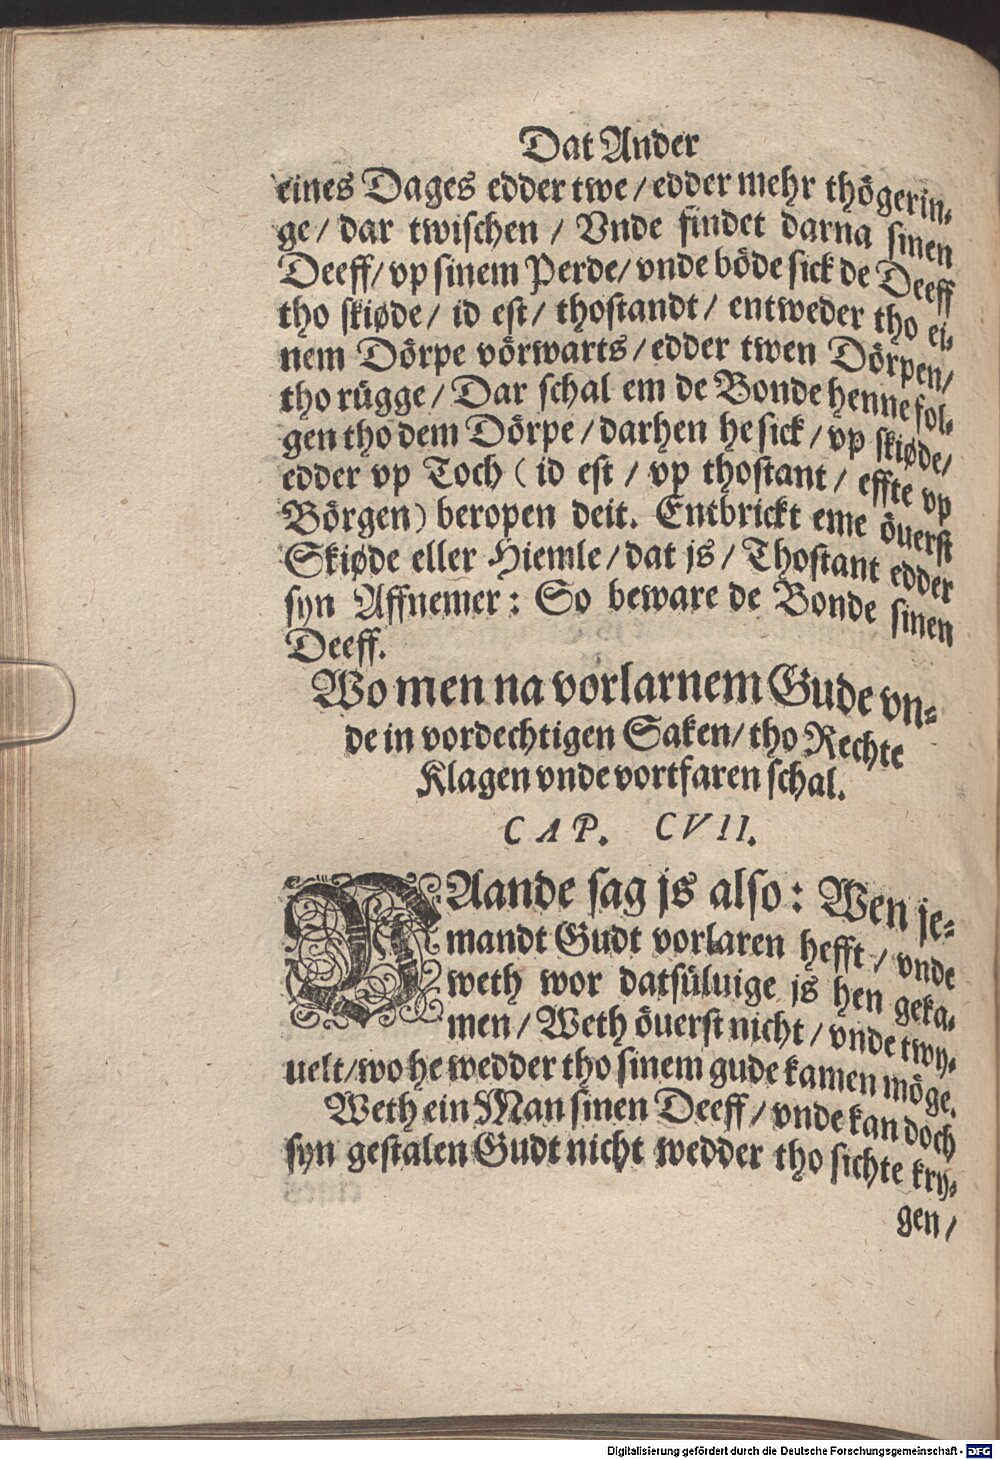 Dat Ander
eines Dages edder twe / edder mehr thögerin-
ge / dar twischen / Vnde findet darna sinen
Deeff / vp sinem Perde / vnde böde sick de Deeff
tho skiøde / id est / thostandt / entweder tho ei-
nem Dörpe vörwarts / edder twen Dörpen /
tho rügge / Dar schal em de Bonde henne fol-
gen tho dem Dörpe / darhen he sick / vp skiøde /
edder vp Toch ( id est / vp thostant / effte vp
Börgen) beropen deit. Entbrickt eme öuerst
Skiøde eller Hiemle / dat js / Thostant edder
syn Affnemer : So beware de Bonde sinen
Deeff.
Wo men na vorlarnem Gude vn-
de in vordechtigen Saken / tho Rechte
Klagen vnde vortfaren schal.
CAP. CVII.
RAande sag js also : Wen je-
mandt Gudt vorlaren hefft / vnde
weth wor datsüluige js hen geka-
men / Weth öuerst nicht / vnde twy-
uelt / wo he wedder tho sinem gude kamen möge.
Weth ein Man sinen Deeff / vnde kan doch
syn gestalen Gudt nicht wedder tho sichte kry-
gen /
Digitalisierung gefördert durch die Deutsche Forschungsgemeinschaft - DFG